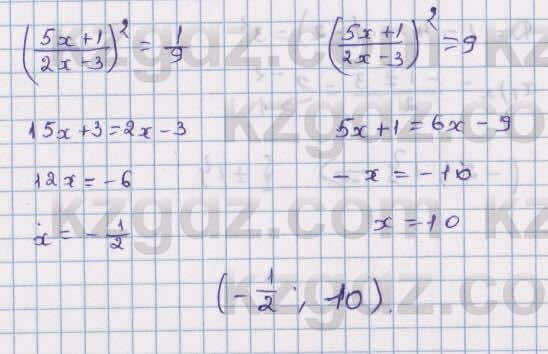 (5x+1 / 2x-3)² = 1/9
(5x+1 / 2x-3)² = 9
15x+3=2x-3
5x+1=6x-9
12x=-6
-x=-10
x=-1/2
x=10
(-1/2; 10).
kzgdz.com